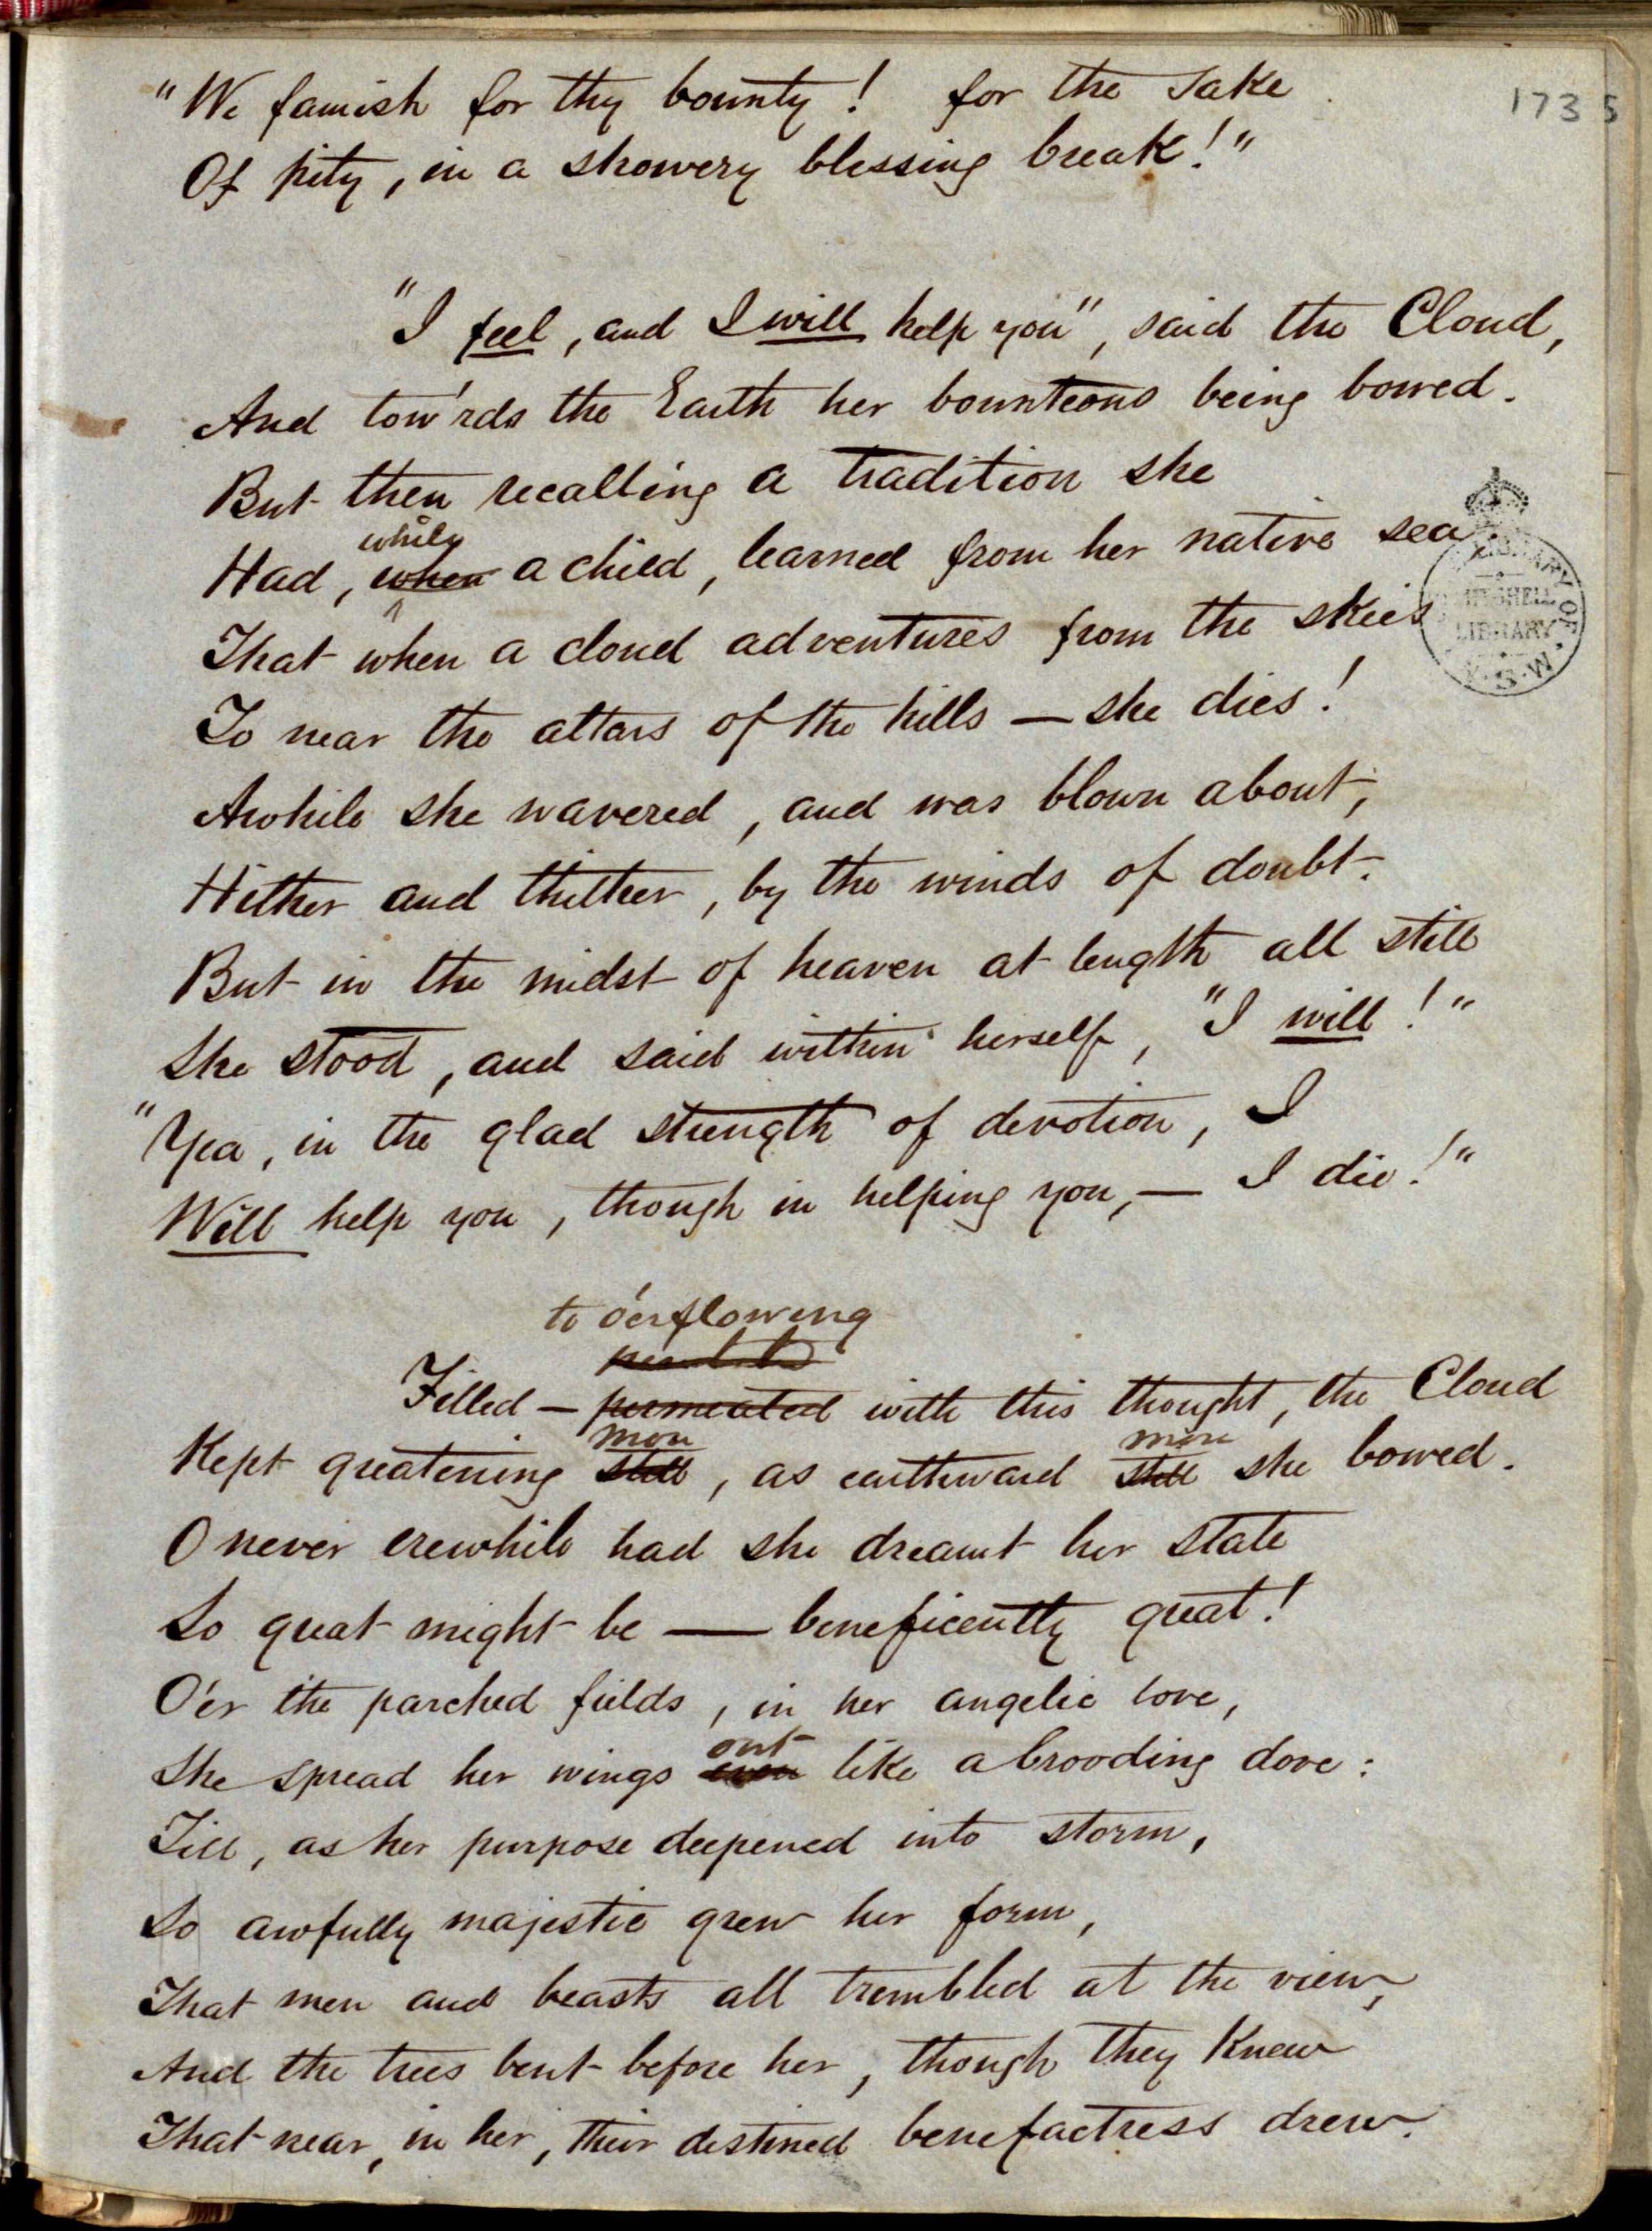 "We famish for thy bounty! for the sake
173 5
Of pity, in a showery blessing break!"
"I feel, and I will help you", said the Cloud,
And tow'rds the Earth her bounteous being bowed.
But then recalling a tradition she
while
Had, when a child, learned from her native sea
That when a cloud adventures from the skies
To near the altars of the hills — she dies!
Awhile she wavered, and was blown about,
Hither and thither, by the winds of doubt.
But in the midst of heaven at length all still
She stood, and said within herself, "I will!"
"Yea, in the glad strength of devotion, I
Will help you, though in helping you, — I die!"
to o'erflowing
Filled — permeated with this thought, the Cloud
more more
Kept greatening still, as earthward still she bowed.
O never erewhile had she dreamt her state
So great might be — beneficently great!
O'er the parched fields, in her angelic love,
out
She spread her wings even like a brooding dove:
Till, as her purpose deepened into storm,
So awfully majestic grew her form,
That men and beasts all trembled at the view,
And the trees bent before her, though they knew
That near, in her, their destined benefactress drew.
LIBRARY OF
MITCHELL
LIBRARY
N.S.W.